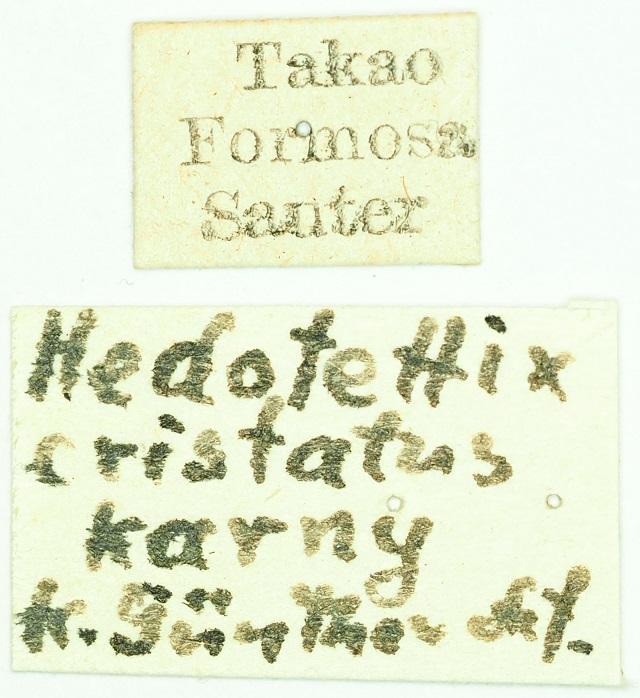 Takao
Formosa
Santer
Hedotettix
cristatus
karny
K. Günther det.